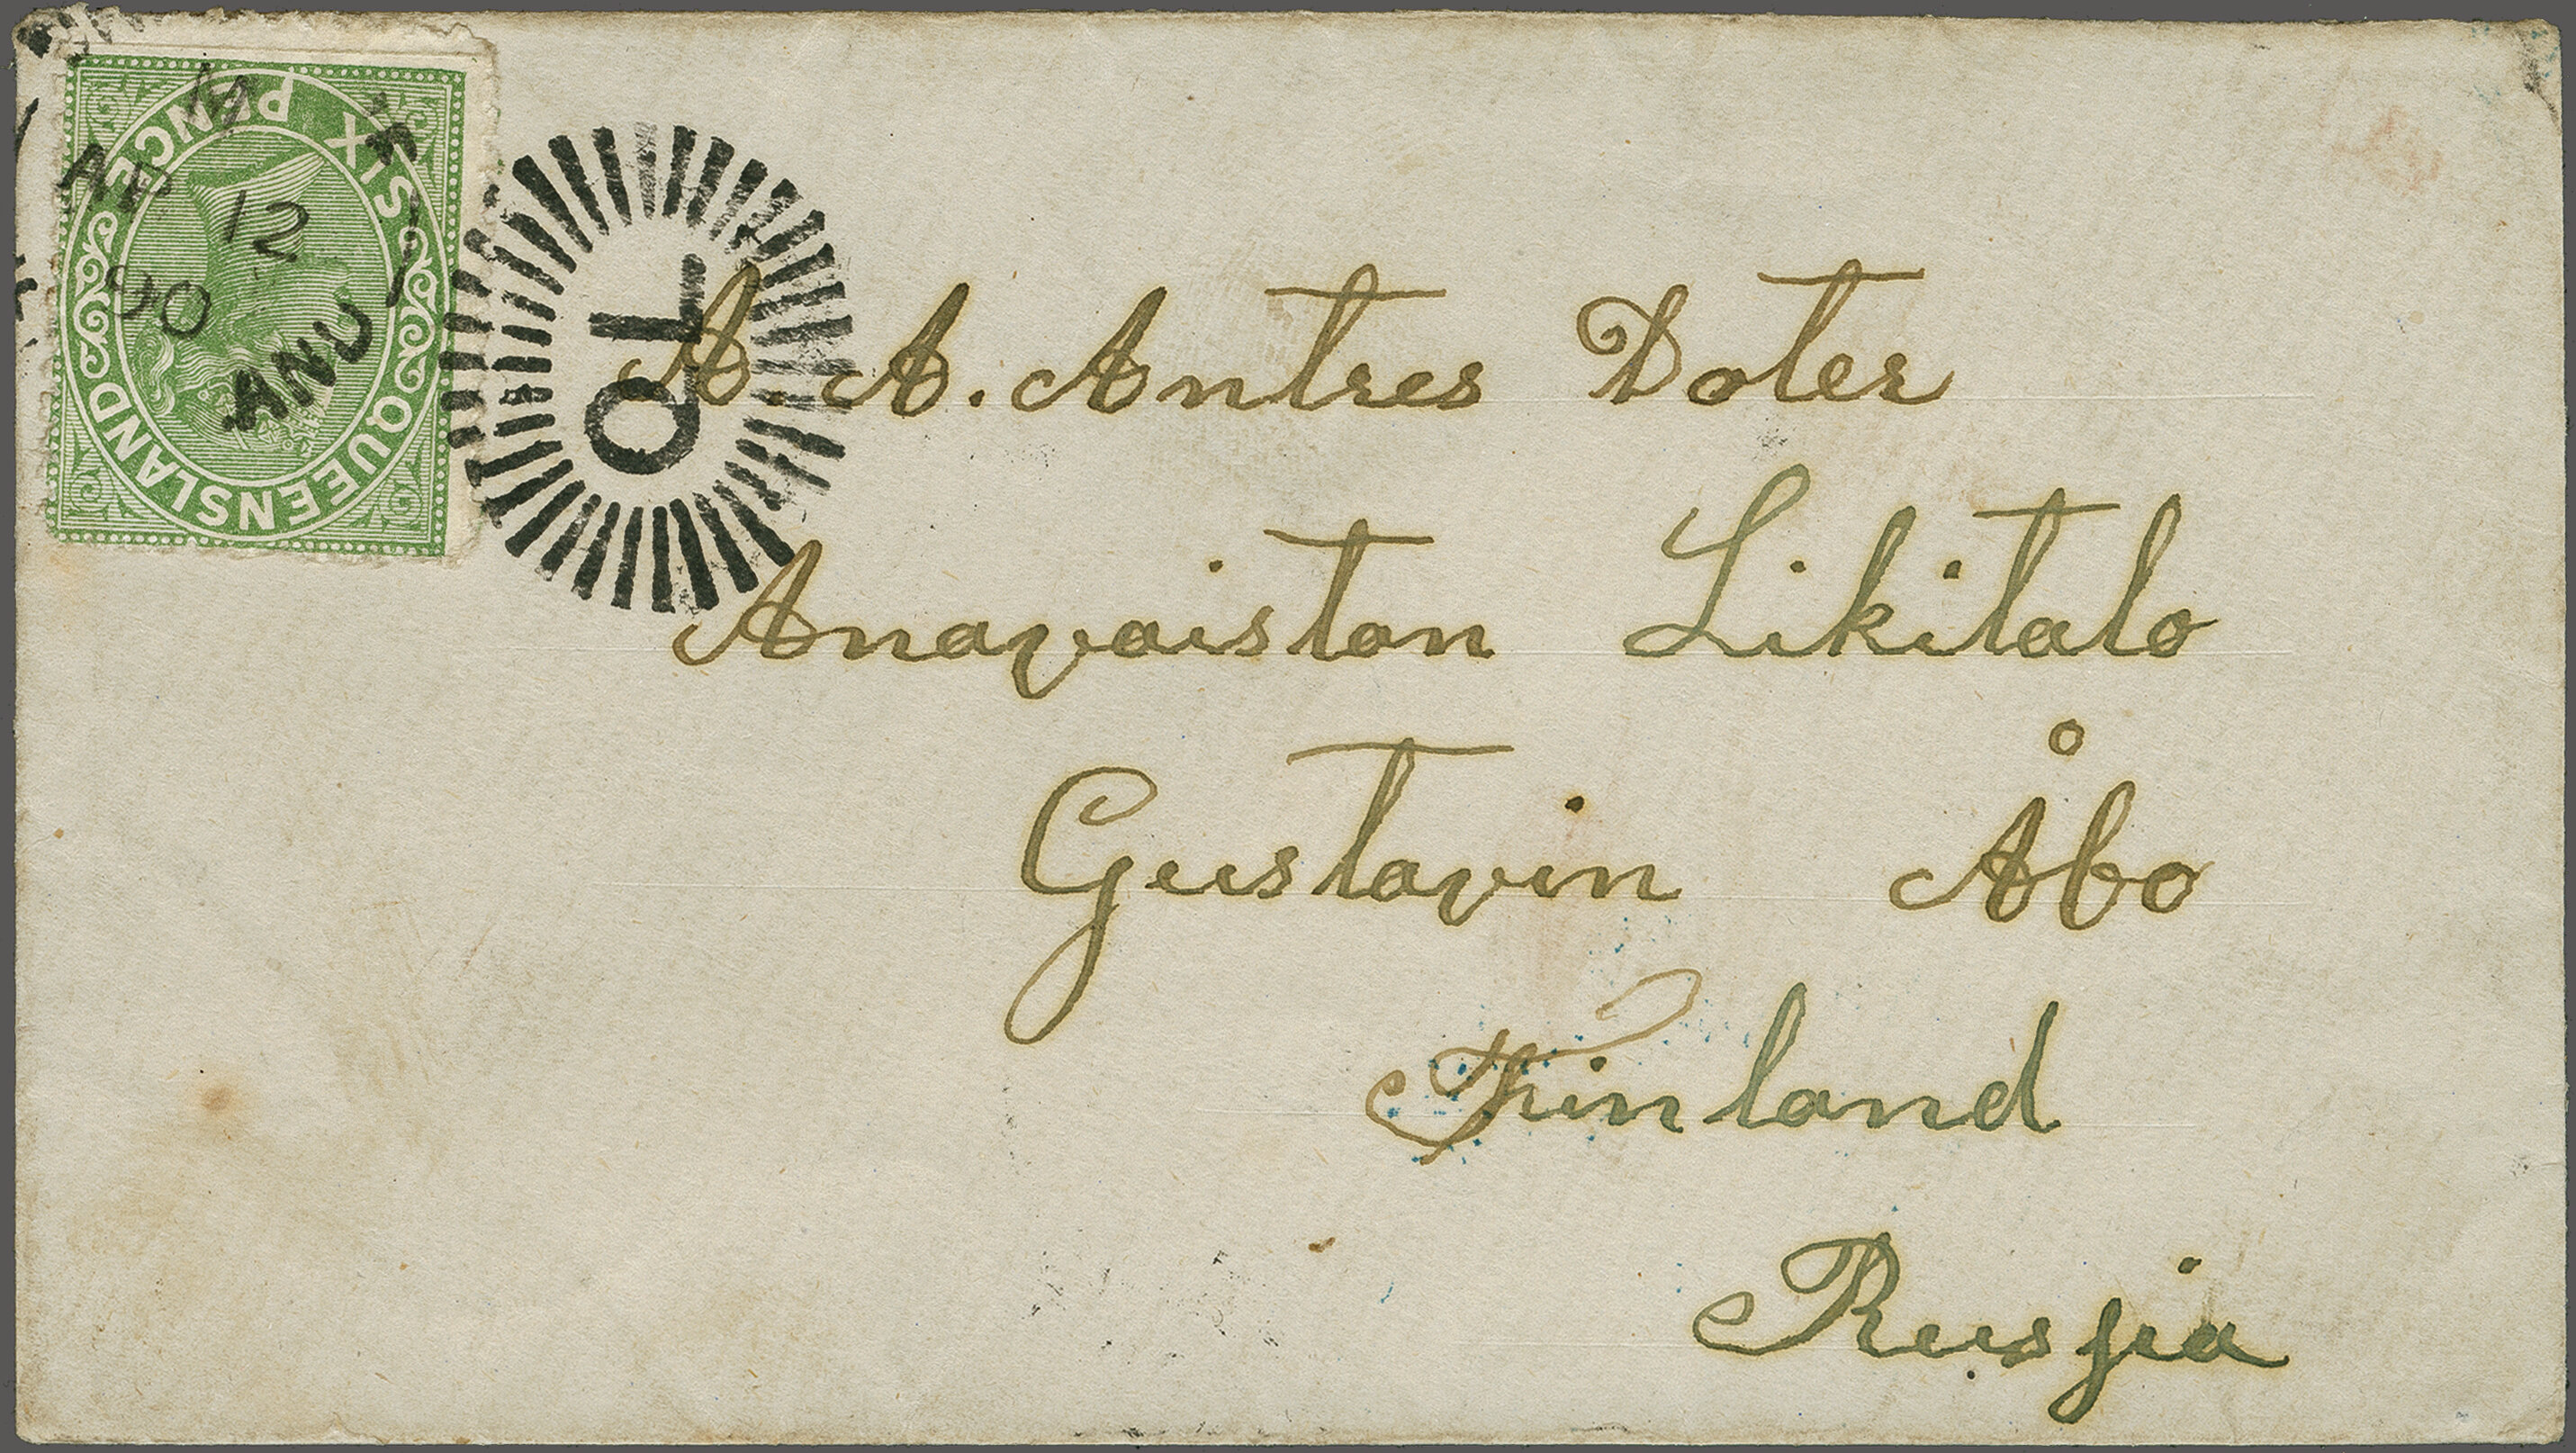 SIX PENCE
QUEENSLAND
AP 12
90
ANU
QL
A. A. Antres Doter
Anavaiston Likitalo
Gustavin Åbo
Finland
Russia